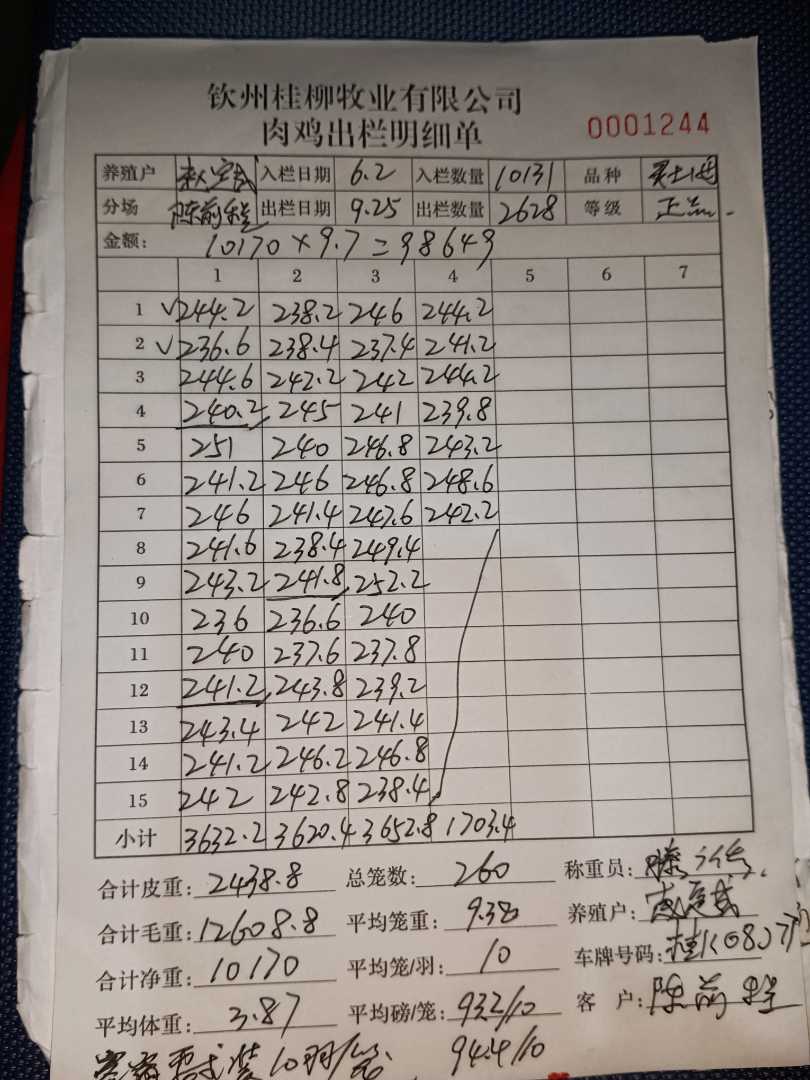 钦州桂柳牧业有限公司
肉鸡出栏明细单 0001244
养殖户 入栏日期 6.2 入栏数量 10131 品种
分场 陈前程 出栏日期 9.25 出栏数量 2628 等级 正品
金额: 10170×9.7=98649
1 2 3 4 5 6 7
1 √244.2 238.2 246 244.2
2 √236.6 238.4 237.4 241.2
3 244.6 242.2 242 244.2
4 240.2 245 241 239.8
5 251 240 246.8 243.2
6 241.2 246 246.8 248.6
7 246 241.4 247.6 242.2
8 241.6 238.4 249.4
9 243.2 241.8 252.2
10 236 236.6 240
11 240 237.6 237.8
12 241.2 243.8 239.2
13 243.4 242 241.4
14 241.2 246.2 246.8
15 242 242.8 238.4
小计 3632.2 3620.4 3652.8 1703.4
合计皮重: 2438.8 总笼数: 260 称重员:
合计毛重: 12608.8 平均笼重: 9.38 养殖户:
合计净重: 10170 平均笼/羽: 10 车牌号码: 桂K08
平均体重: 3.87 平均磅/笼: 93.2/10 客户: 陈前程
装10羽/笼 94.4/10